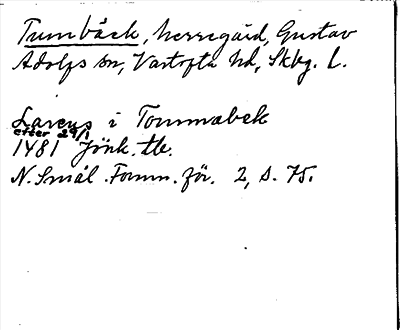 Tumbäck, herregård, Gustav
Adolfs sn, Vartofta hd, Skbg. l.
Larens i Tommabek
efter 29/1
1481 Jönk. tb.
N. Smål. Fornm. för. 2, s. 75.